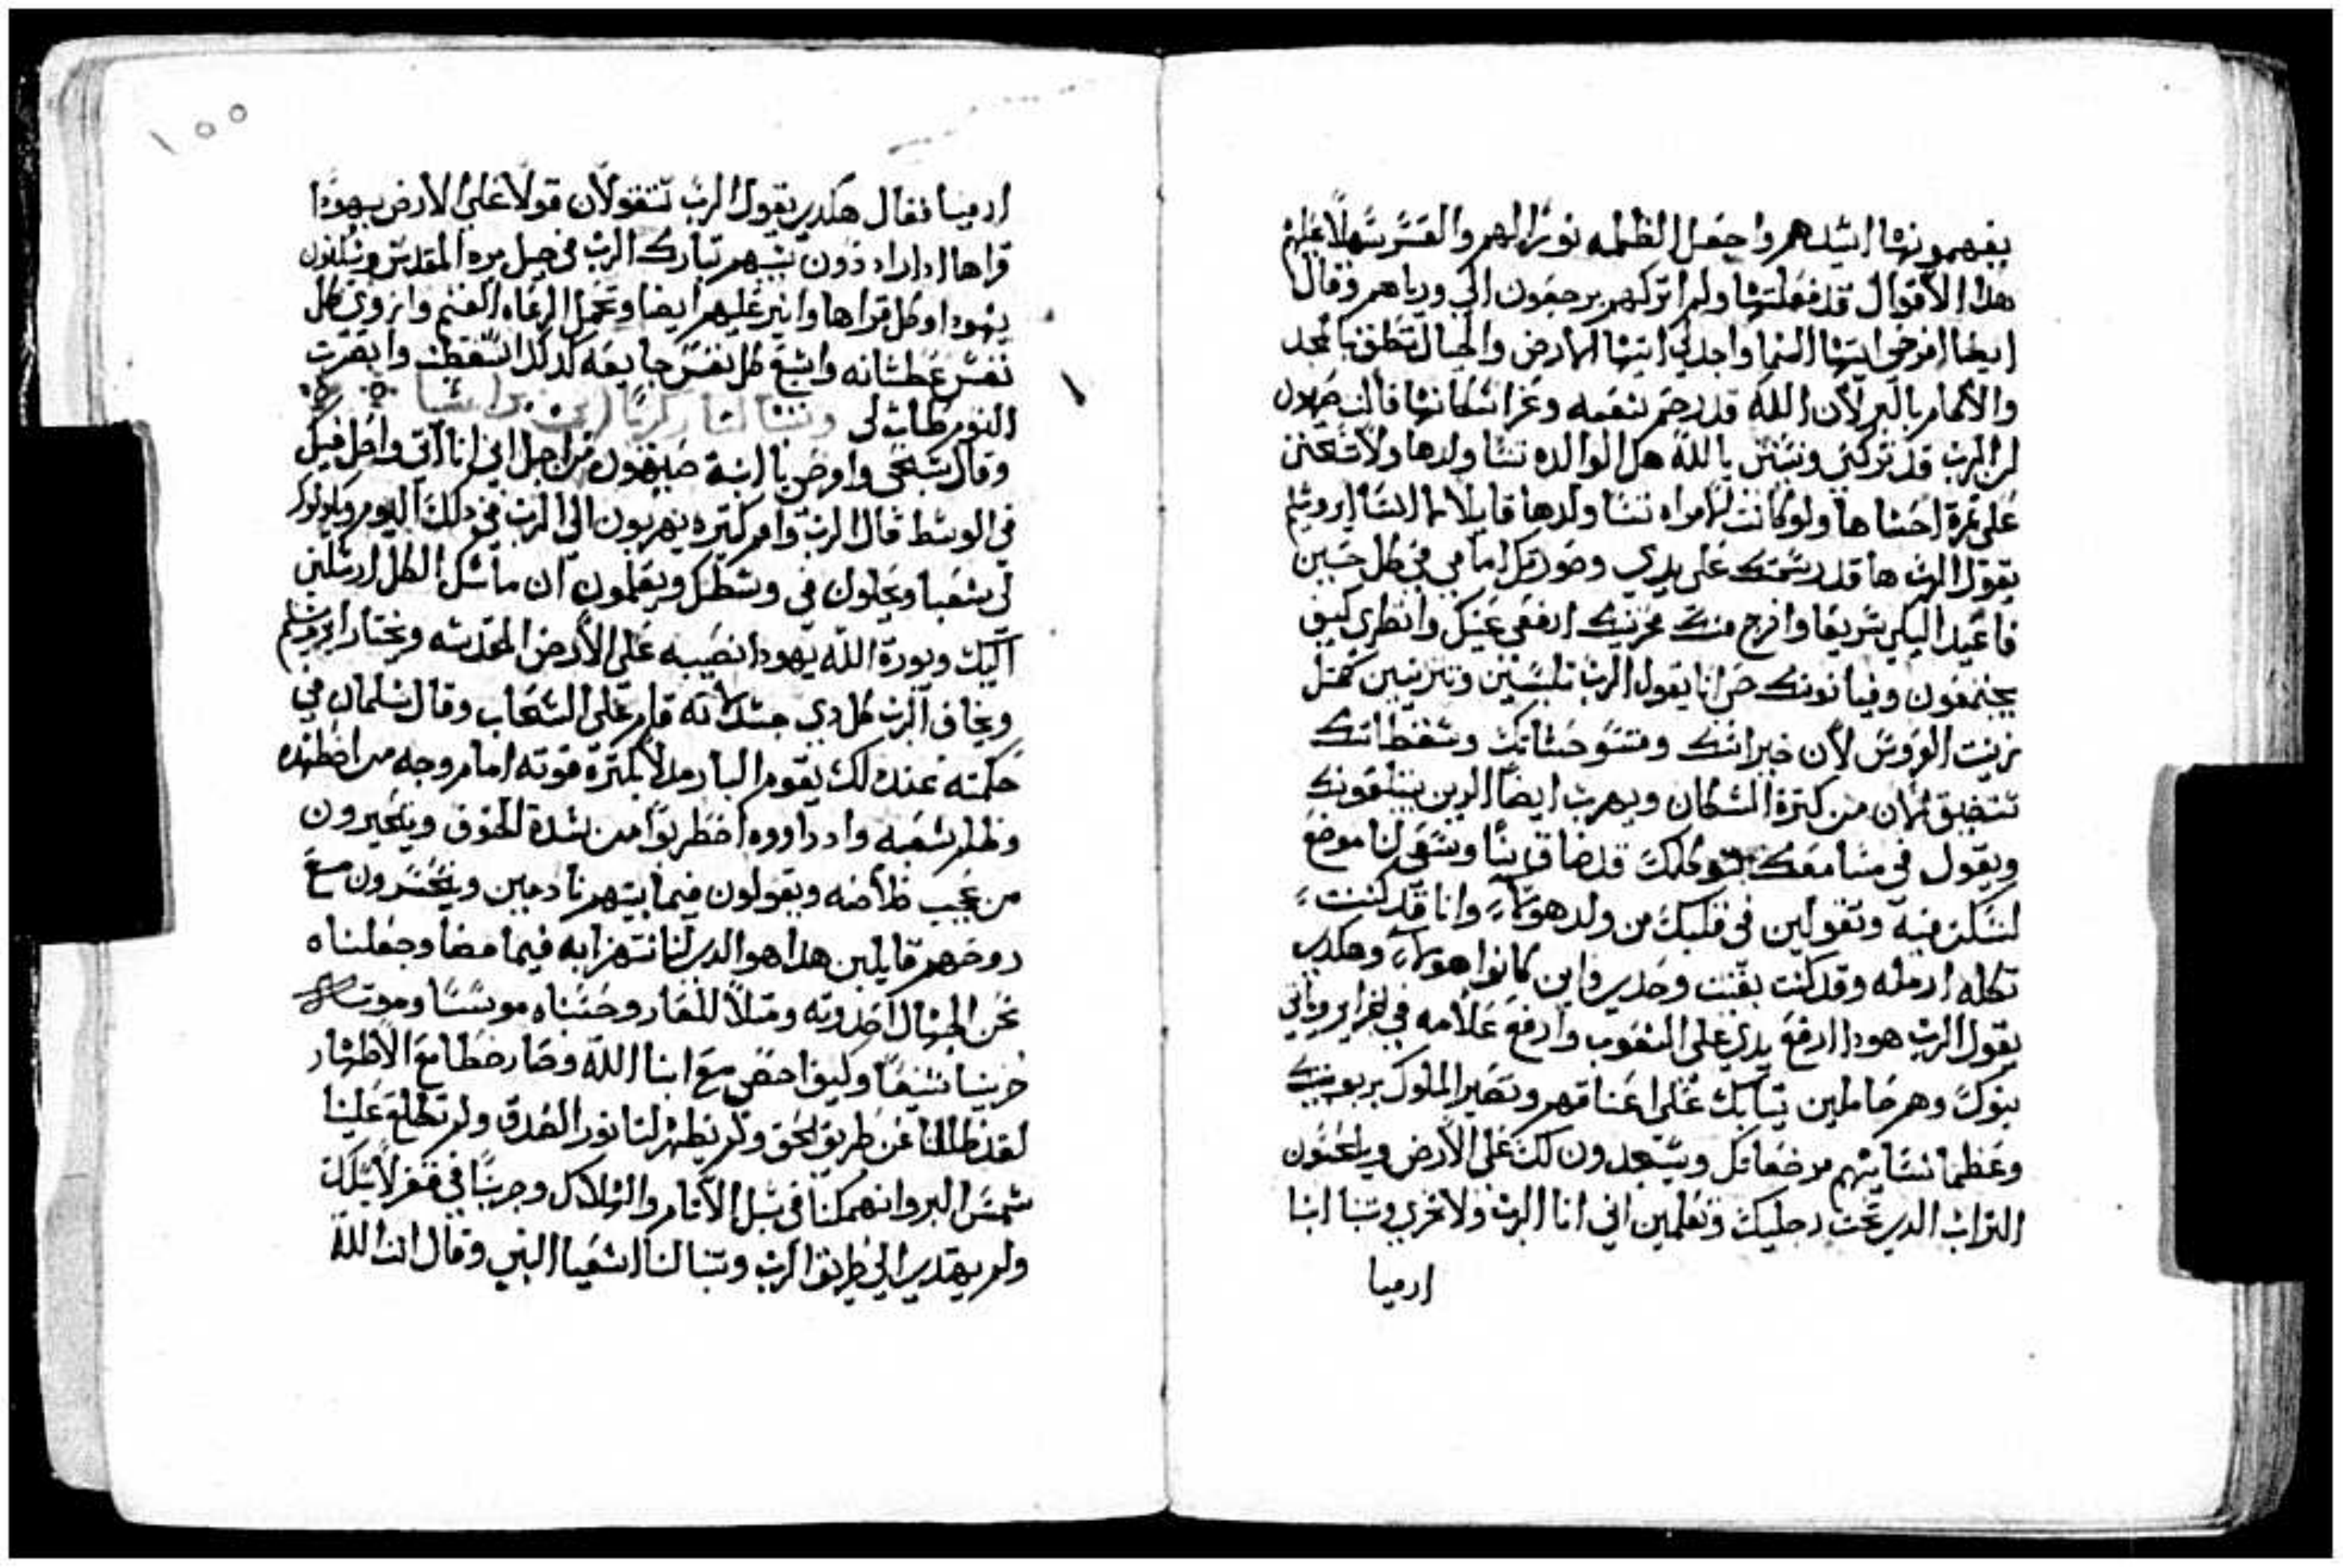 يفهمونها اشيدهم واجعل الظلمه نورًا لهم والعسر سهلًا عليهم
هذا الاقوال قد فعلتها ولم اتركهم يرجعون الي وراهم وقال
ايضا افرحي ايتها السما واجدلي ايتها الارض والجبال تنطق بالمجد
والاكام بالبر لان الله قد رحم شعبه وعزا سكانها قالت صهيون
ان الرب قد تركني ونسني يا لله هل الوالده تنسا ولدها ولا تتحنن
علي ثمرة احشاها ولو كانت المراه تنسا ولدها قايلا لما انسا ايروشليم
يقول الرب ها قد رسمتك علي يدي وصورتك امامي في كل حين
فاعيد اليكي سريعا وافرح منك محزنيك ارفعي عينيك وانظري كيف
يجتمعون وفيا نونك حي انا يقول الرب تلبسين وتتزينين كمثل
زينت العروس لان خيراتك ومتوحشاتك وسقطاتك
تتضيق الان من كثرة السكان ويهرب ايضا الدين يبتلعونك
ويقول في مسامعك بنو كلمك قد ضاق بنا وسعي لنا موضع
لنسكن فيه وتقولين في قلبك من ولد هولاء وانا قد كنت
تكله ارمله وقد كنت بقيت وحدي فاين كانوا هولاء وهكدي
يقول الرب هودا ارفع يدي علي الشعوب وارفع علامه في الجزاير وياتي
بنوك وهم حاملين ثيابك علي اعناقهم وتصير الملوك يربو بنيك
وعظما نسايهم مرضعاتك ويسجدون لك علي الارض ويلحسون
التراب الدي تحت رجليك وتعلمين اني انا الرب ولا تخزي وتنبا ايضا
ارميا
١٥٥
ارميا فقال هكدي يقول الرب ستقولان قولا علي الارض يهودا
قراها ادا اردون سبيهم تبارك الرب في جبل بره المقدس ويسكنون
يهودا وكل قراها وانير عليهم ايضا وتحمل الرعاه الغنم واروي كل
نفس عطشانه واشبع كل نفس جايعه لدلك استيقظت وابصرت
النوم طاب لي وتنبا لنا زكريا
وقال سبحي وافرحي يا ابنة صهيون من اجل اني انا اتي واحل فيكي
في الوسط قال الرب وامم كثيره يهربون الي الرب في دلك اليوم ويكونون
لي شعبا ويحلون في وسطك ويعلمون ان ماسك الكل ارسلني
اليك ويورث الله يهودا نصيبه علي الارض المقدسه ويختار ايروشليم
ويخاف الرب كل دي جسد لانه قام علي السحاب وقال سليمان في
حكمته عند دلك يقوم البار مدلا بكثرة قوته امام وجه من اضطهده
وظلم شعبه وادا راووه اضطربوا من شدة الخوف ويتحيرون
من عجب خلاصه ويقولون فيما بينهم نادمين ويتحسرون مع
روحهم قايلين هدا هو الدي كنا نتهزا به فيما مضا وجعلناه
نحن الجهال احدوته ومثلا للعار وحسبناه موسسا وموته
خزينا شنيعا وكيف احصي مع ابنا الله وصار حظا مع الاطهار
لقد ظللنا عن طريق الحق ولم يظهر لنا نور الصدق ولم تطلع علينا
شمس البر وانهمكنا في سبل الاثام والهلاك وجرينا في قفر لا يسلك
ولم يهتدي الي طريق الرب وتنبا لنا اشعيا النبي وقال انت الله